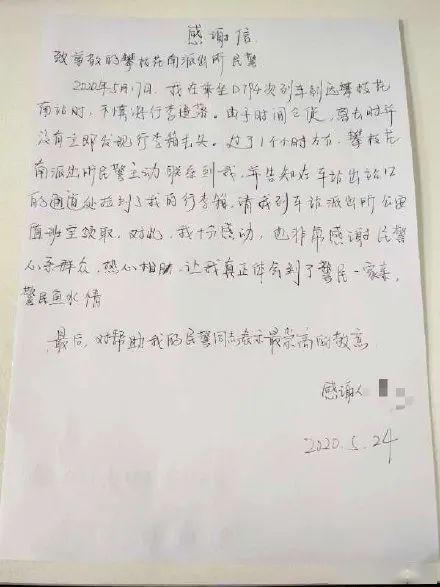 感谢信
致尊敬的攀枝花南派出所民警
2020年5月17日,我在乘坐D794次列车到达攀枝花
南站时,不慎将行李遗落。由于时间仓促,离去时并
没有立即发现行李箱丢失。过了1个小时左右,攀枝花
南派出所民警主动联系到我,并告知在车站出站口
的通道处捡到了我的行李箱,请我到车站派出所公안
值班室领取。对此,我十分感动,也非常感谢民警
心系群众,热心相助,让我真正体会到了警民一家亲,
警民鱼水情
最后,对帮助我的民警同志表示最崇高的敬意
感谢人
2020.5.24